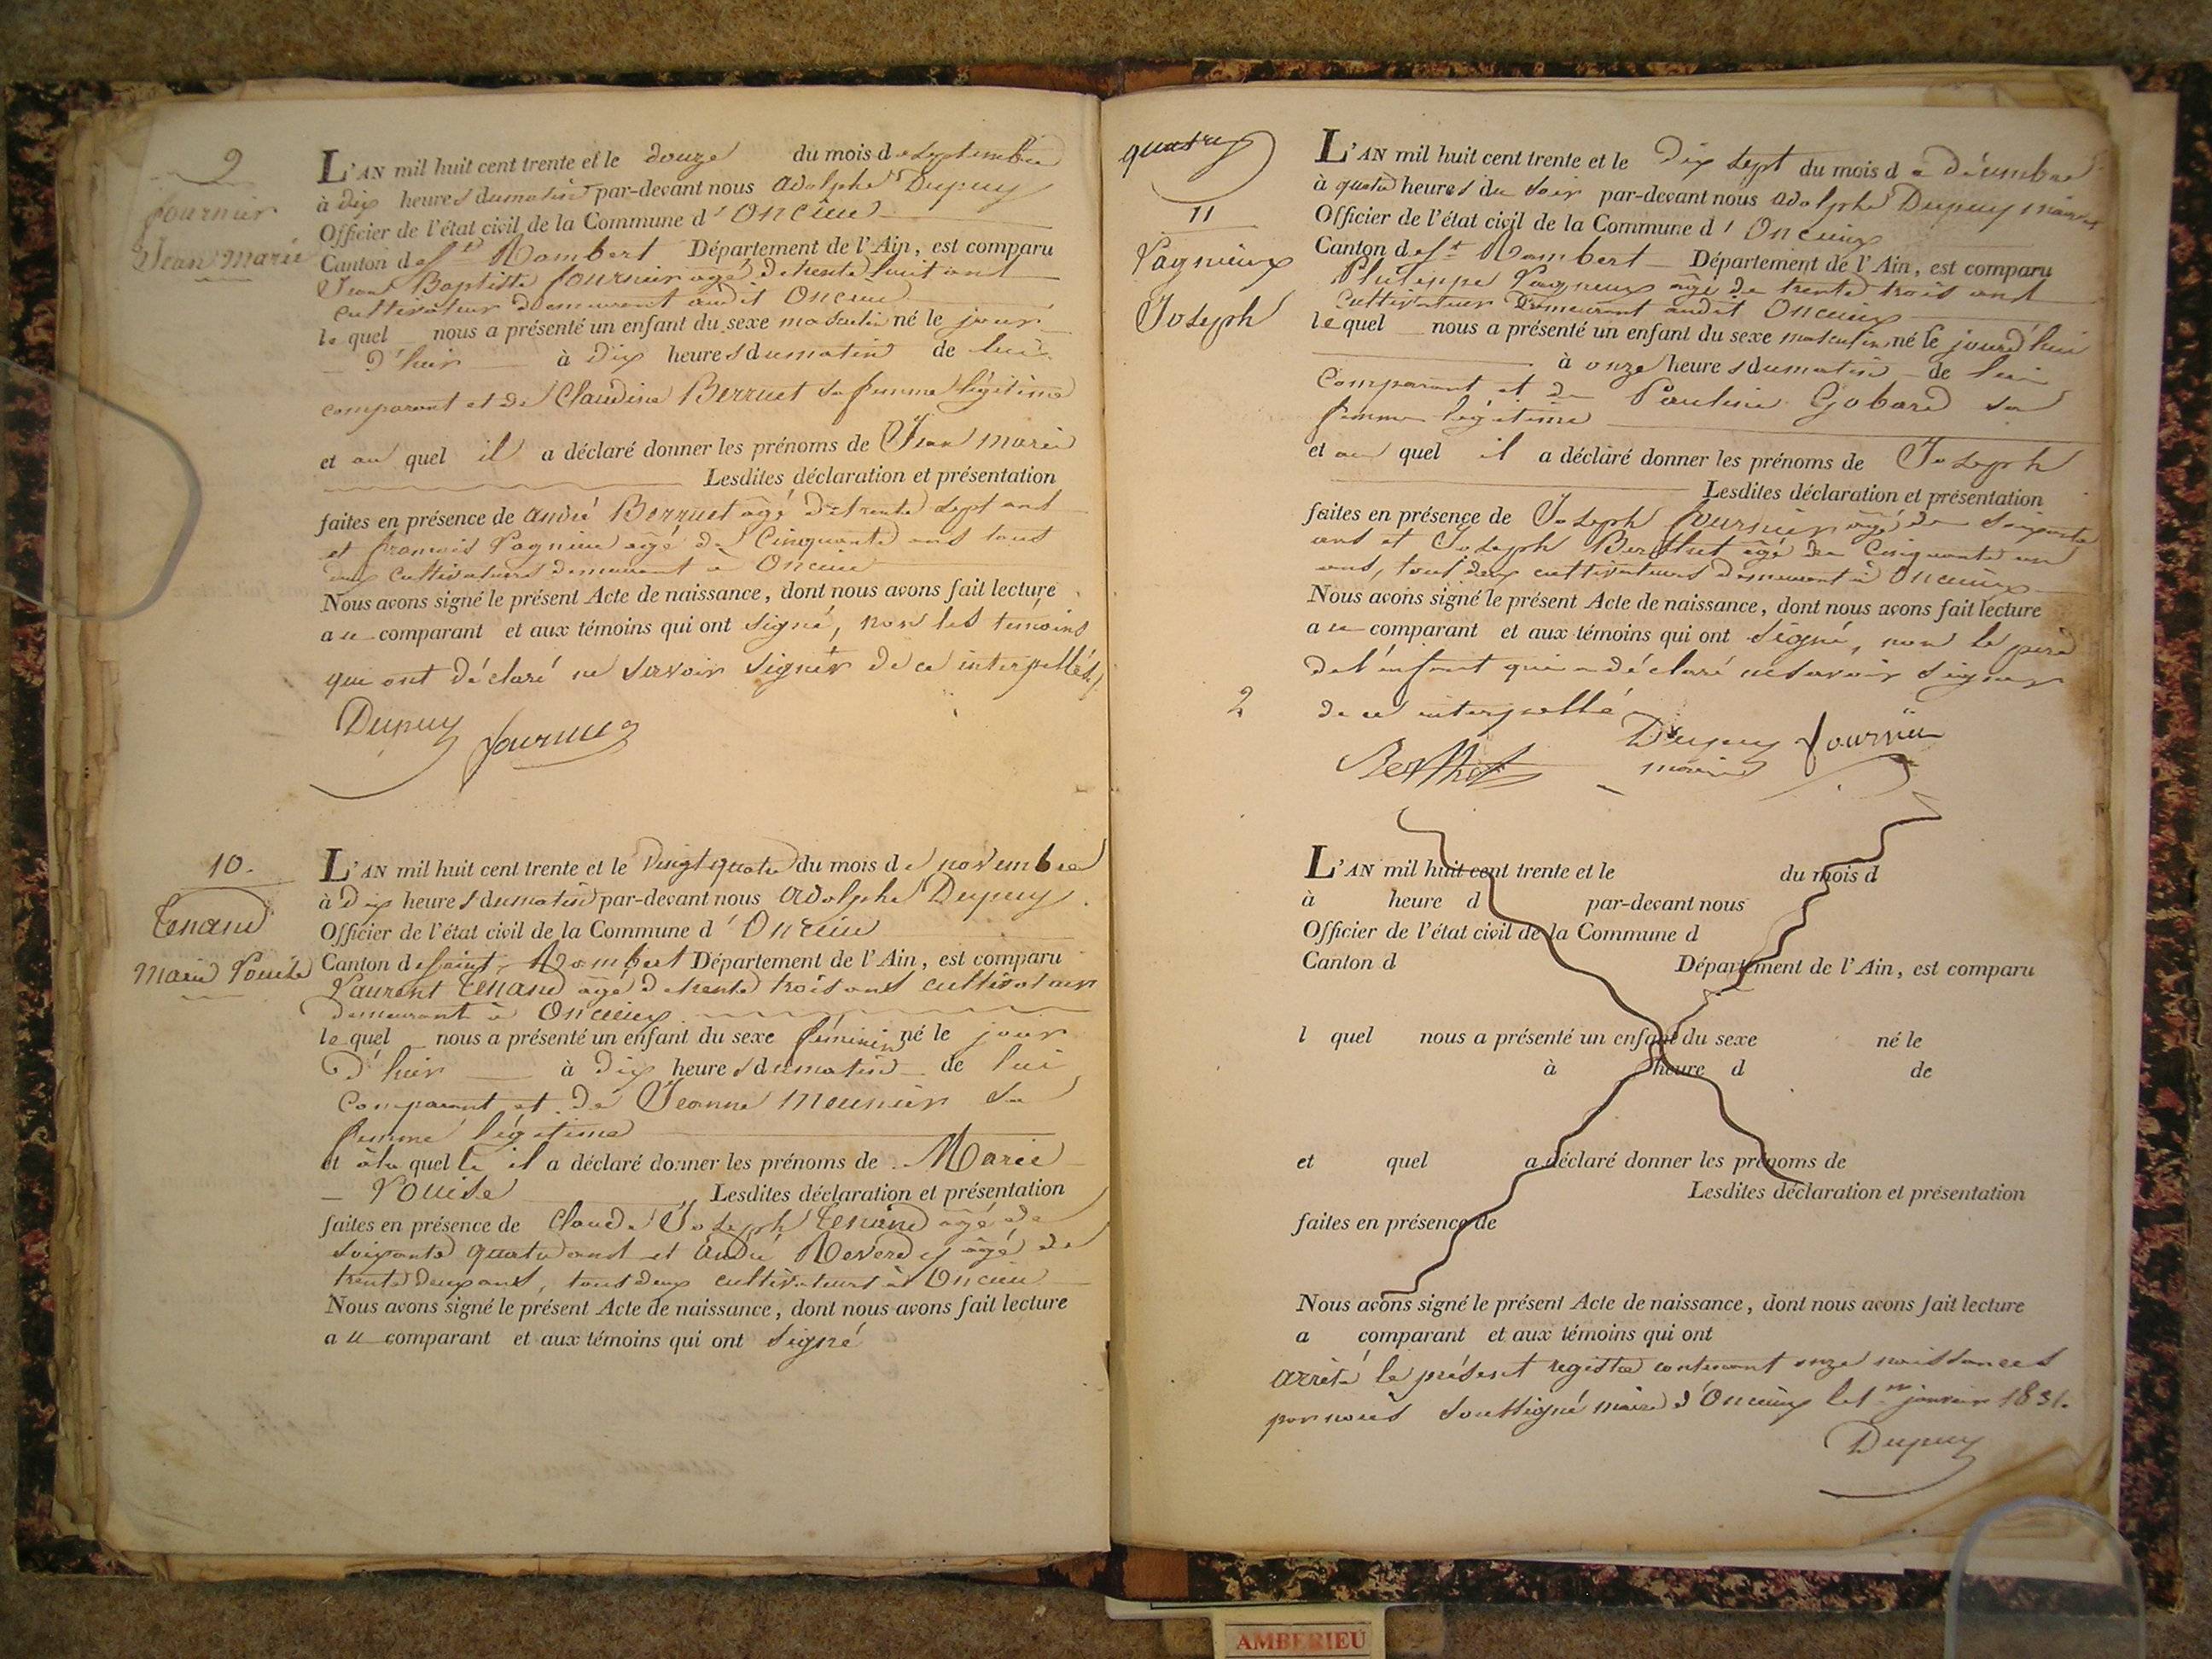 9
fournier
Jean marie
L'AN mil huit cent trente et le douze du mois de septembre
à dix heures du matin par-devant nous adolphe Dupuy
Officier de l'état civil de la Commune d'Oncieu
Canton de St Rambert Département de l'Ain, est comparu
Jean Baptiste fournier agé de trente huit ans
cultivateur demeurant audit Oncieu
lequel nous a présenté un enfant du sexe masculin né le jour
d'hier à dix heures du matin de lui
comparant et de Claudine Berruet sa femme légitime
et au quel il a déclaré donner les prénoms de Jean marie
Lesdites déclaration et présentation
faites en présence de andré Berruet agé de trente sept ans
et francois Vagnieu agé de Cinquante ans tous
deux cultivateurs demeurant à Oncieu
Nous avons signé le présent Acte de naissance, dont nous avons fait lecture
au comparant et aux témoins qui ont signé, non les témoins
qui ont déclaré ne savoir signer de ce interpellés
Dupuy fournier
10.
Tenand
Marie Louise
L'AN mil huit cent trente et le vingt quatre du mois de novembre
à dix heures du matin par-devant nous adolphe Dupuy
Officier de l'état civil de la Commune d'Oncieu
Canton de saint Rambert Département de l'Ain, est comparu
Laurent Tenand agé de trente trois ans cultivateur
demeurant à Oncieux
lequel nous a présenté un enfant du sexe féminin né le jour
d'hier à dix heures du matin de lui
Comparant et de Jeanne Meunier sa
femme légitime
et à la quelle il a déclaré donner les prénoms de Marie
Louise Lesdites déclaration et présentation
faites en présence de Claude Joseph Tenand agé de
soixante quatre ans et André Reverdy agé de
trente deux ans, tous deux cultivateurs à Oncieu
Nous avons signé le présent Acte de naissance, dont nous avons fait lecture
au comparant et aux témoins qui ont signé
quatre
11
Vagnieux
Joseph
L'AN mil huit cent trente et le dix sept du mois de décembre
à quatre heures du soir par-devant nous adolphe Dupuy maire
Officier de l'état civil de la Commune d'Oncieux
Canton de St Rambert Département de l'Ain, est comparu
Philippe Vagnieux agé de trente trois ans
cultivateur demeurant audit Oncieux
lequel nous a présenté un enfant du sexe masculin né le jourd'hui
à onze heures du matin de lui
Comparant et de Pauline Gobard sa
femme légitime
et au quel il a déclaré donner les prénoms de Joseph
Lesdites déclaration et présentation
faites en présence de Joseph fournier agé de soixante
ans et Joseph Berthet agé de Cinquante un
ans, tous deux cultivateurs demeurant à Oncieux
Nous avons signé le présent Acte de naissance, dont nous avons fait lecture
au comparant et aux témoins qui ont signé, non le père
de l'enfant qui a déclaré ne savoir signer
2 de ce interpellé
Dupuy fournier
Berthet maire
L'AN mil huit cent trente et le du mois d
à heure d par-devant nous
Officier de l'état civil de la Commune d
Canton d Département de l'Ain, est comparu
l quel nous a présenté un enfant du sexe né le
à heure d de
et quel a déclaré donner les prénoms de
Lesdites déclaration et présentation
faites en présence de
Nous avons signé le présent Acte de naissance, dont nous avons fait lecture
a comparant et aux témoins qui ont
arrêté le présent registre contenant onze naissances
par nous soussigné maire d'Oncieux le 1er janvier 1831.
Dupuy
AMBERIEU